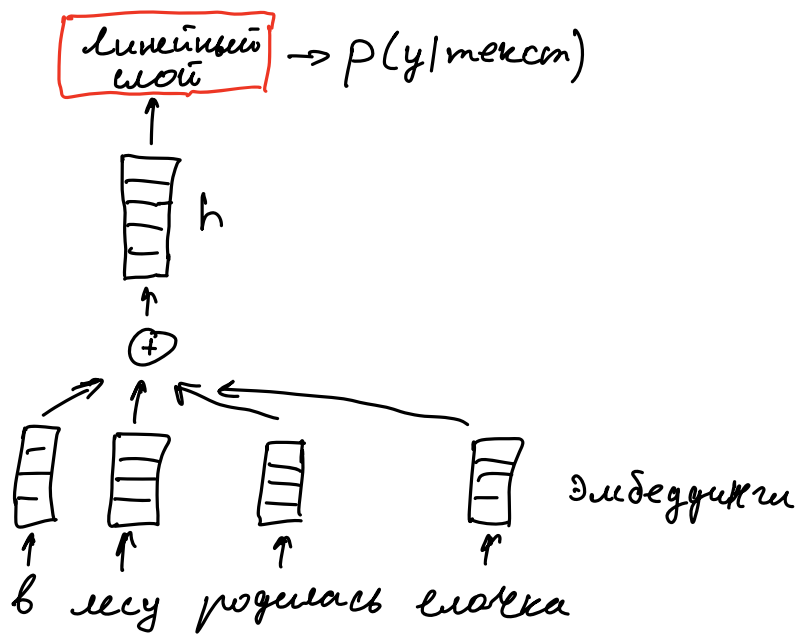 линейный
слой
→ p(y|текст)
h
+
эмбеддинги
в лесу родилась елочка